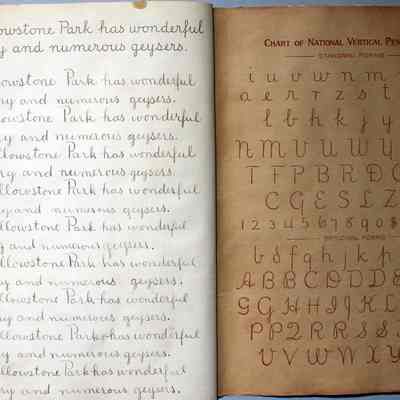 owstone Park has wonderful
y and numerous geysers.
llowstone Park has wonderful
ry and numerous geysers.
lowstone Park has wonderful
y and numerous geysers.
llowstone Park has wonderful
ry and numerous geysers.
llowstone Park has wonderful
y and numerous geysers.
llowstone Park has wonderful
y and numerous geysers.
llowstone Park has wonderful
y and numerous geysers.
llowstone Park has wonderful
y and numerous geysers.
llowstone Park has wonderful
y and numerous geysers.
llowstone Park has wonderful
ry and numerous geysers.
CHART OF NATIONAL VERTICAL PEN
STANDARD FORMS
i u v w n m
a e r r z s t
l b h k j y
N M V U W Y
T F P B R D
C G E S L Z
1 2 3 4 5 6 7 8 9 0 $
OPTIONAL FORMS
b d f g h j k p
A B B C D D D E
G G H H I J K L
P P Q R R S S
U V W W X Y